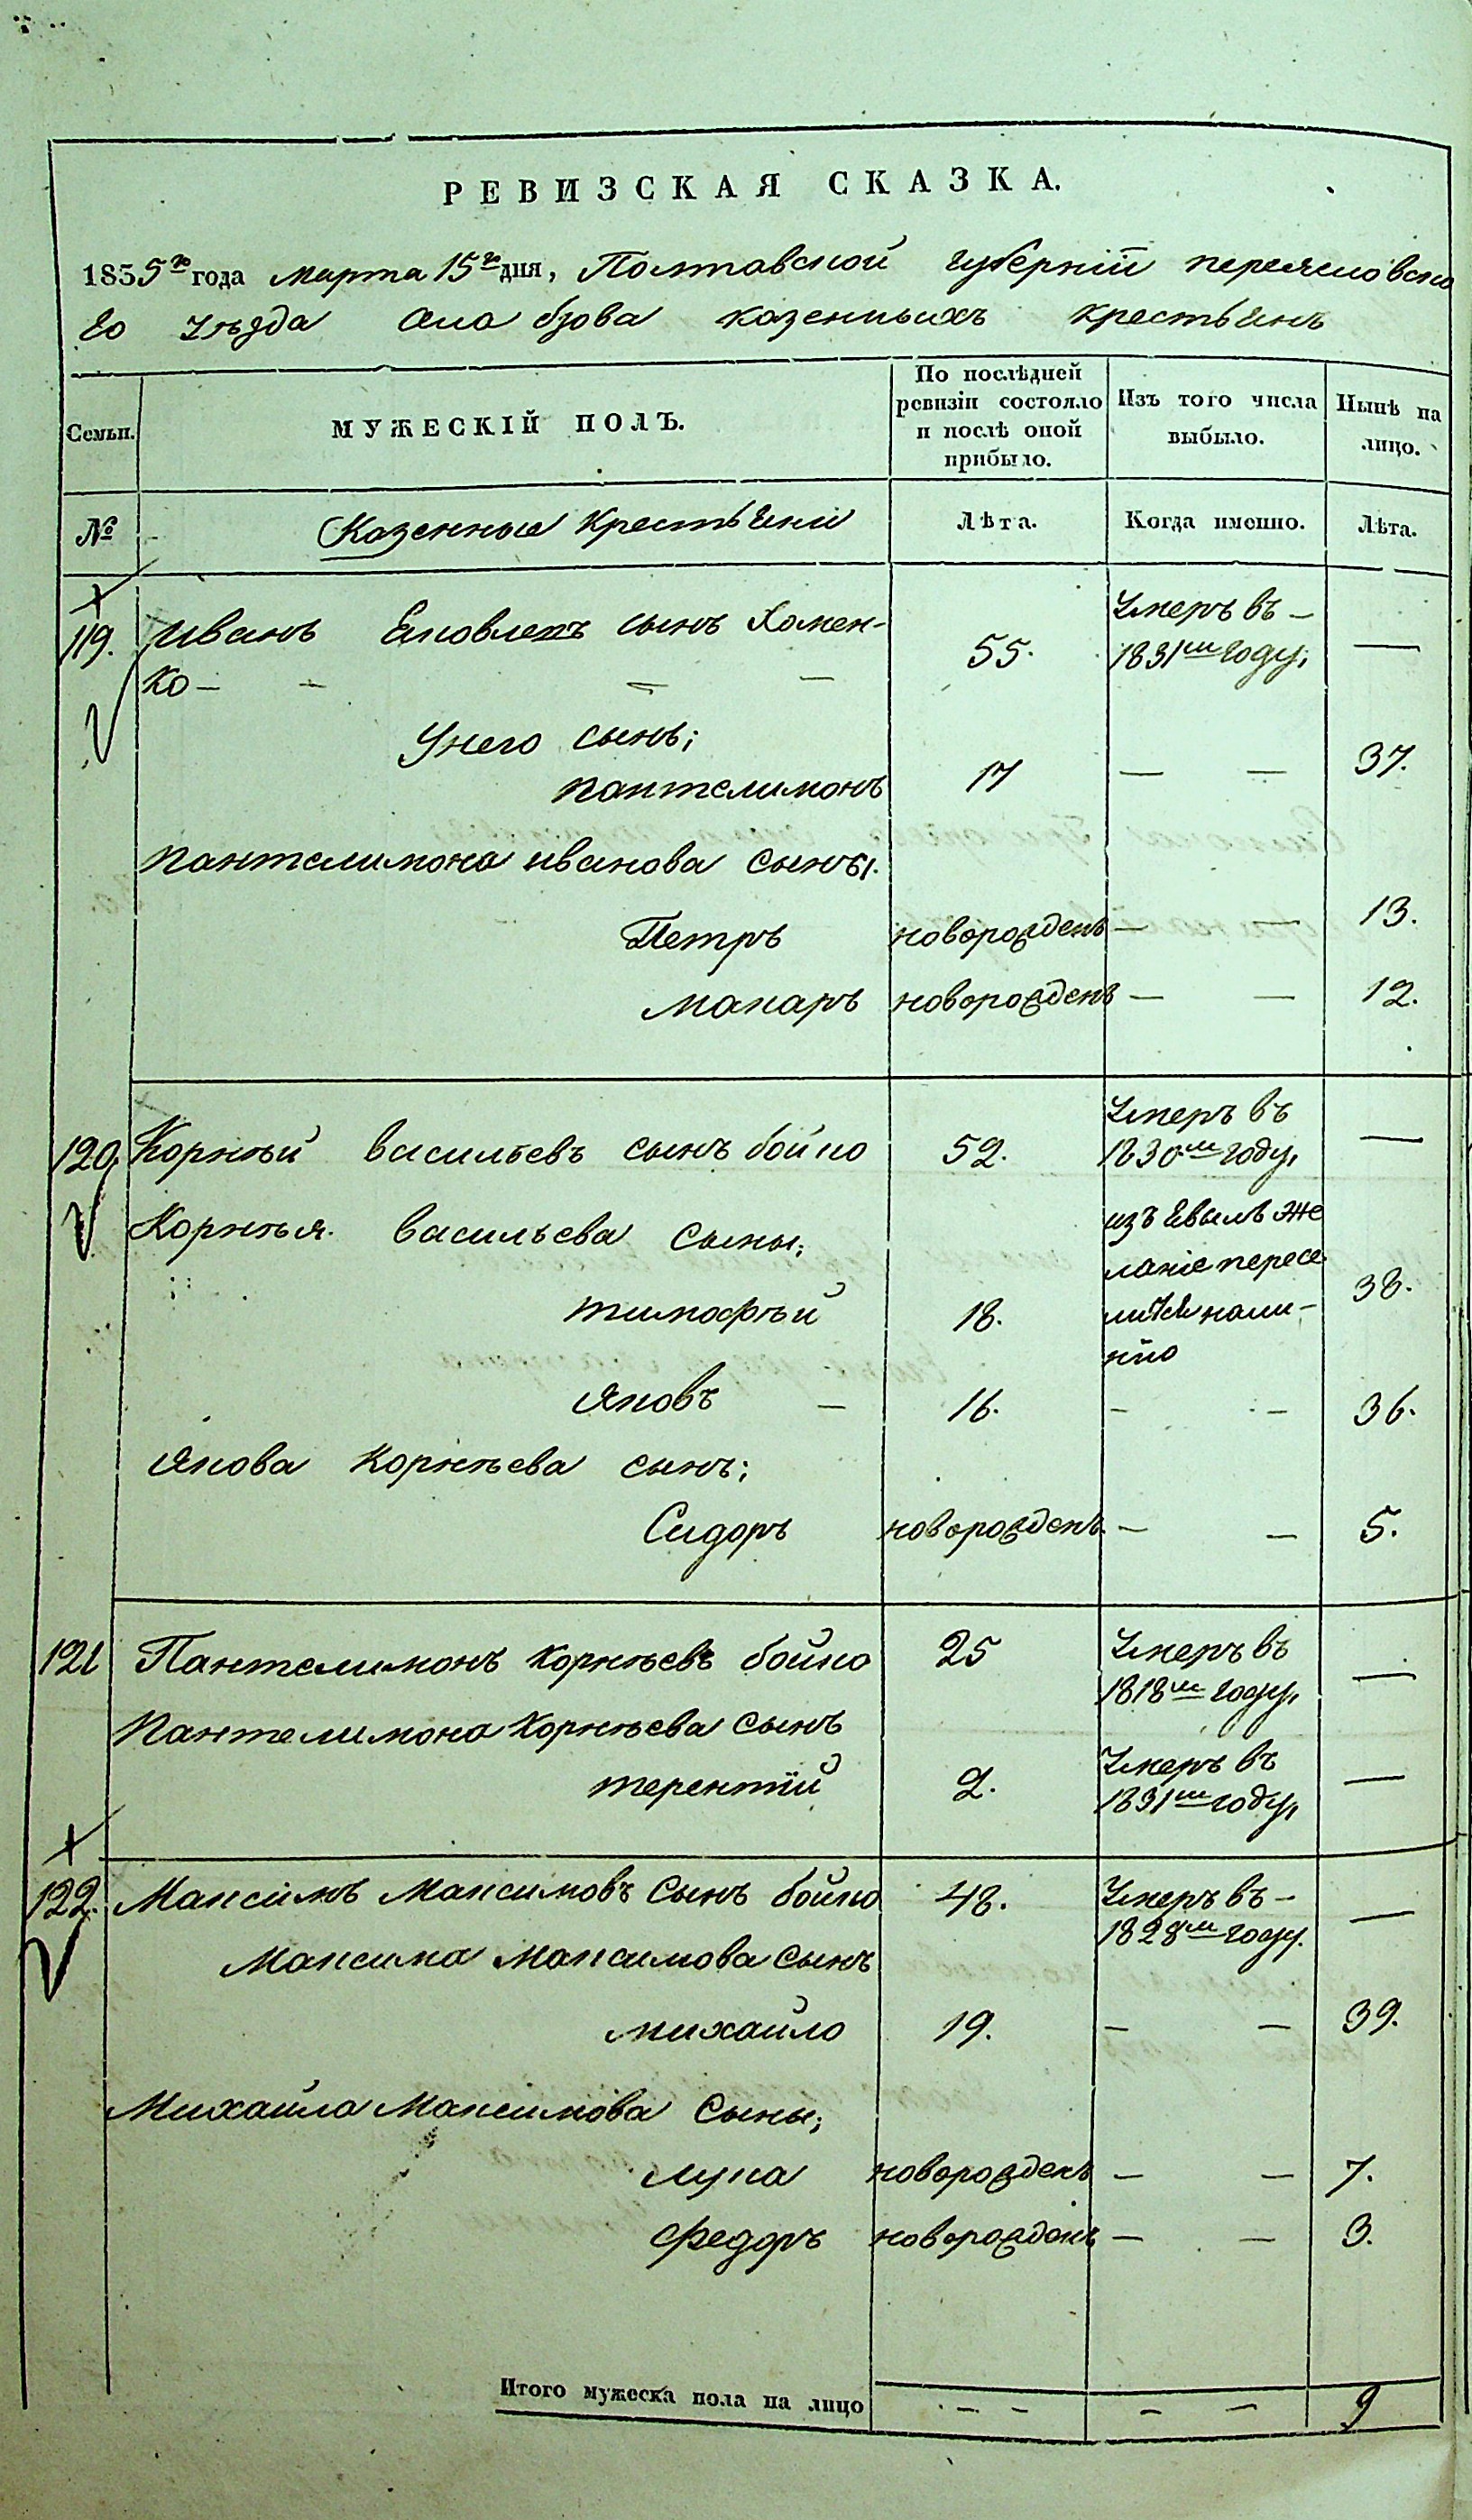 РЕВИЗСКАЯ СКАЗКА.
1835го года марта 15го дня, Полтавской губернiи переясловска
го Уѣзда села бзова казенныхъ крестьянъ
Семьи. МУЖЕСКІЙ ПОЛЪ. По послѣдней ревизіи состояло и послѣ оной прибыло. Изъ того числа выбыло. Нынѣ на лицо.
№ Казенные крестьяни Лѣта. Когда именно. Лѣта.
119. Иванъ Яковлевъ сынъ Хомен- 55. Умеръ въ –
ко – – – – 1831м году, —
Унего сынъ;
пантелимонъ 17 — — 37.
пантелимона иванова сыны.
Петръ новорожденъ — — 13.
макаръ новорожденъ — — 12.
120. Корнѣй васильевъ сынъ бойко 52. Умеръ въ
1830м году, —
Корнѣя васильева сыны;
изъ явилъ же
ланіе пересе
тимофѣй 18. литься на ли- 38.
нію
яковъ — 16. – – 36.
якова корнѣева сынъ;
Сидоръ новорожденъ – – 5.
121 Пантелимонъ корнѣевъ бойко 25 Умеръ въ
1818м году, —
пантелимона корнѣева сынъ
терентiй 2. Умеръ въ
1831м году, —
122. Максимъ максимовъ сынъ бойко 48. Умеръ въ –
1828м году. —
максима максимова сынъ
михайло 19. – – 39.
Михайла максимова сыны;
лука новорожденъ – – 7.
федоръ новорожденъ – – 3.
Итого мужеска пола на лицо – – – – 9